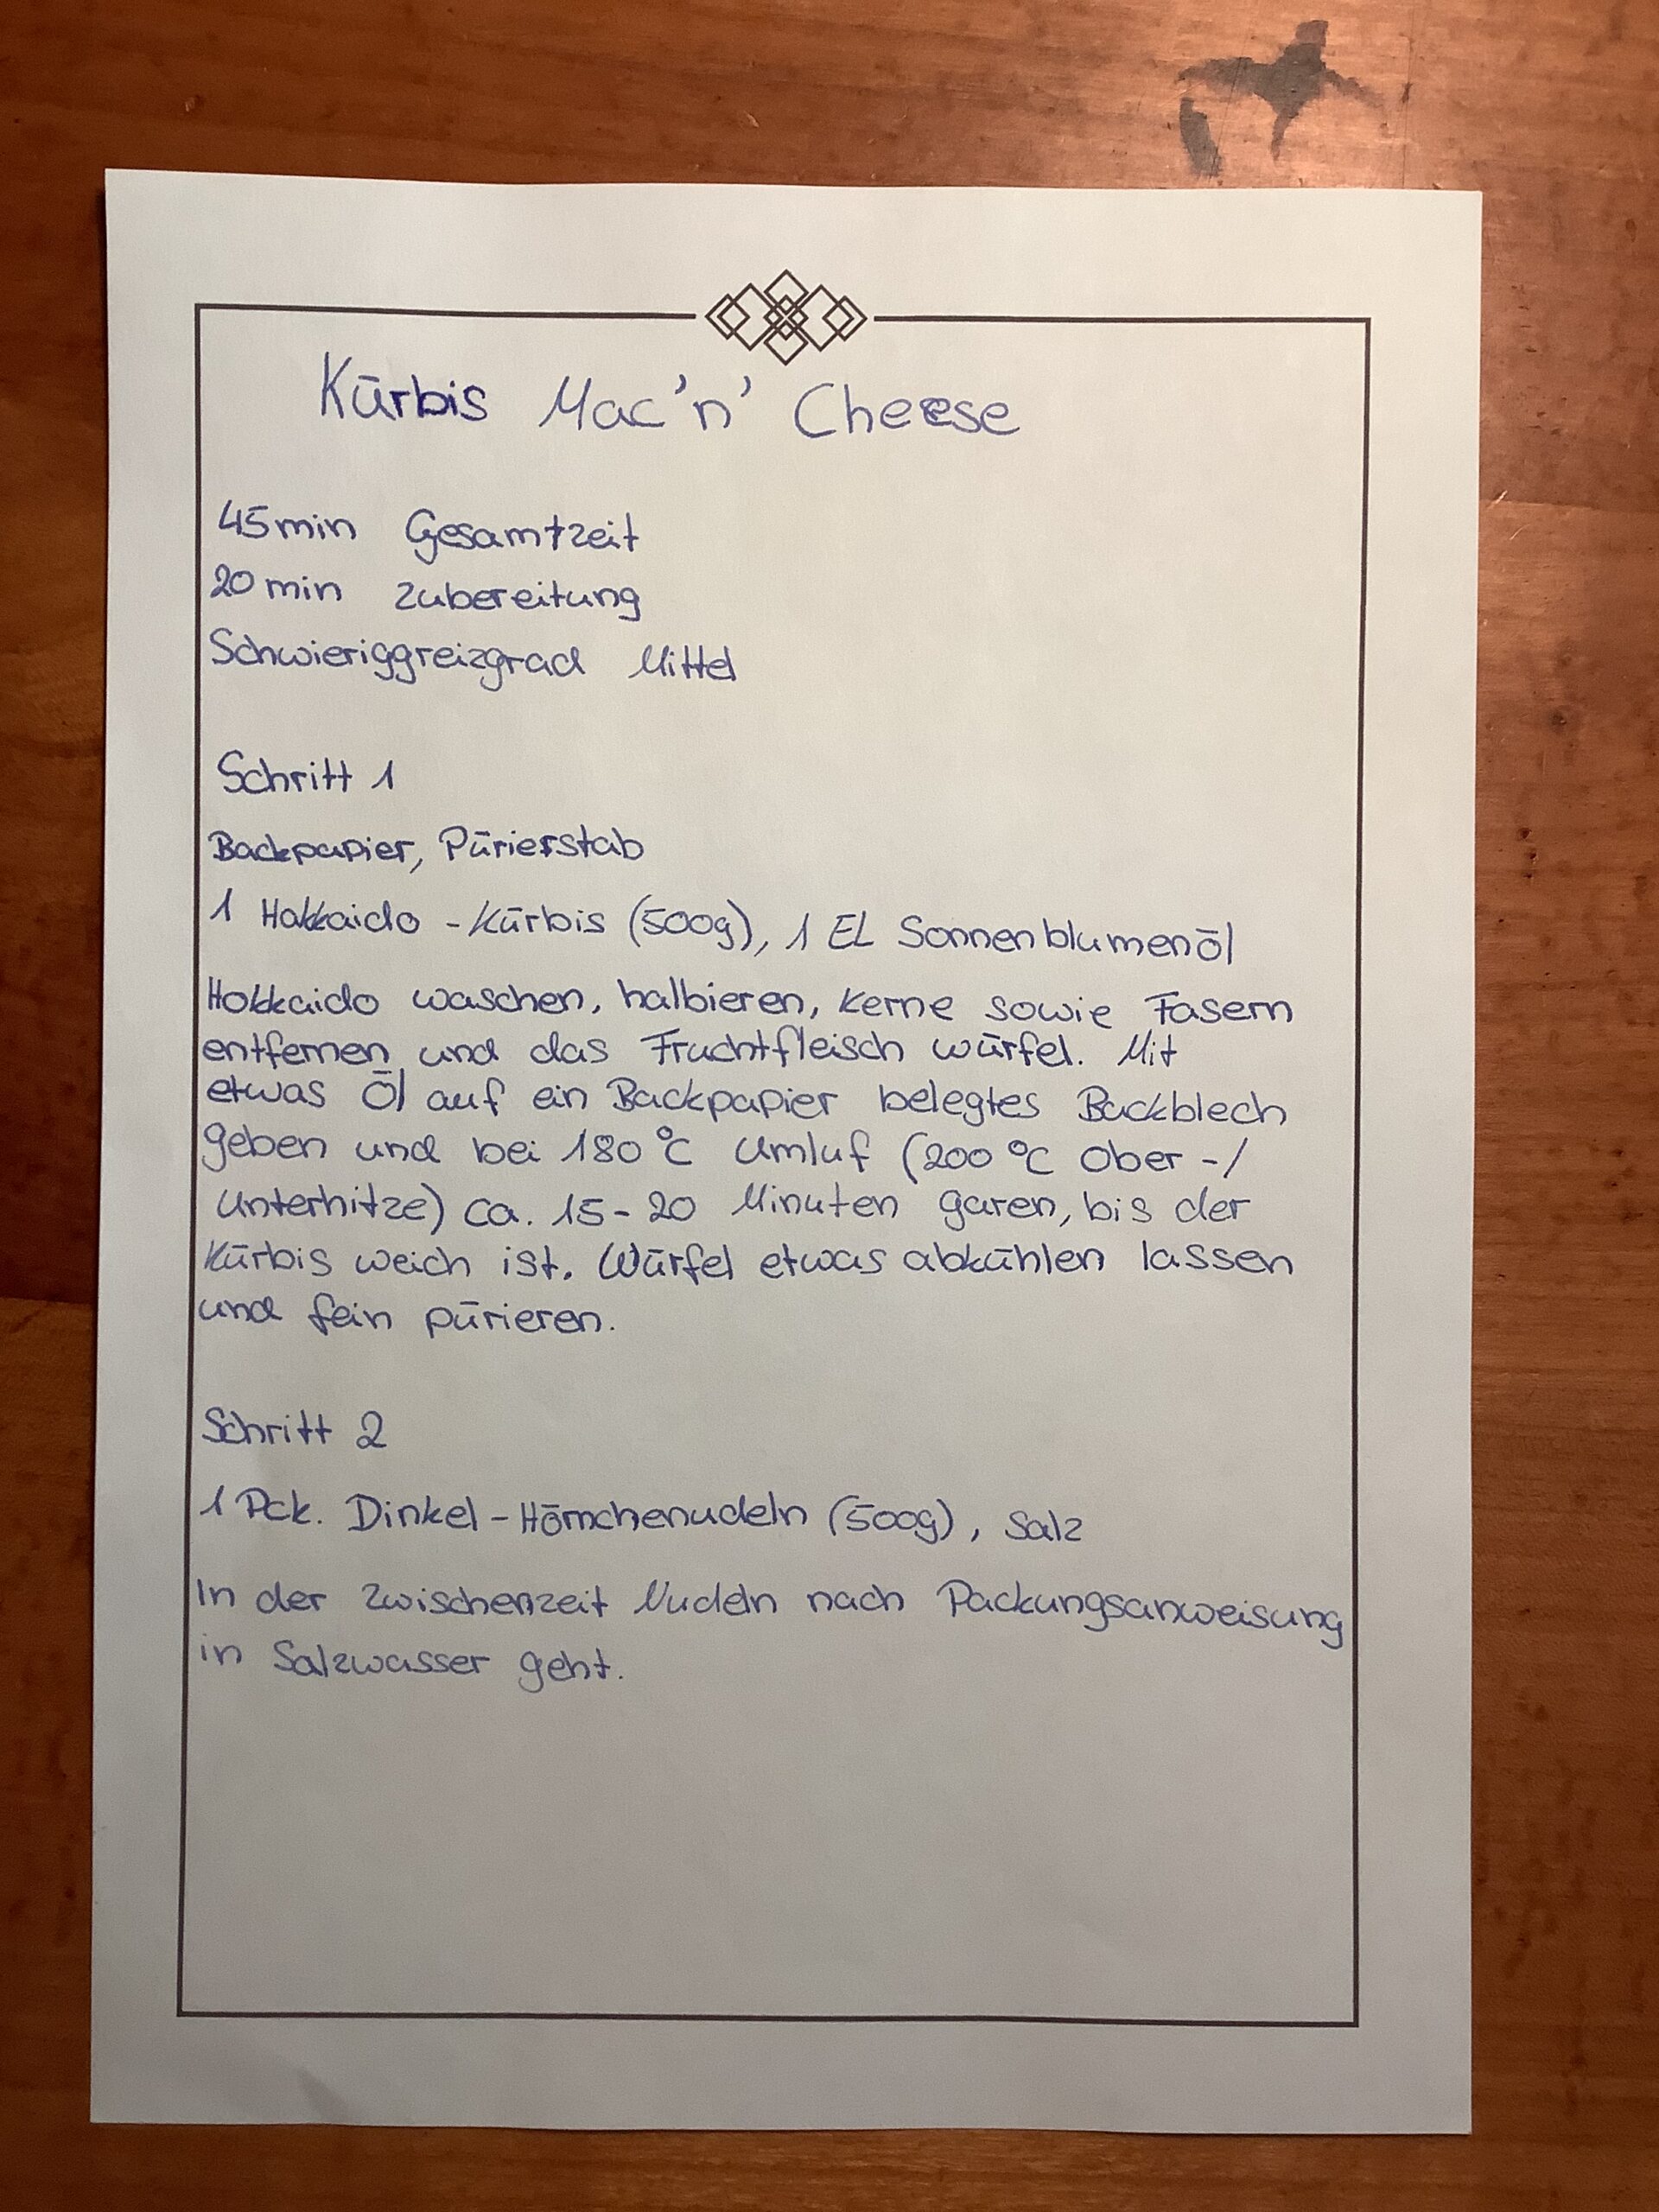 Kürbis Mac'n' Cheese
45min Gesamtzeit
20min Zubereitung
Schwieriggreizgrad Mittel
Schritt 1
Backpapier, Pürierstab
1 Hokkaido - Kürbis (500g), 1 EL Sonnenblumenöl
Hokkaido waschen, halbieren, Kerne sowie Fasern
entfernen und das Fruchtfleisch würfel. Mit
etwas Öl auf ein Backpapier belegtes Backblech
geben und bei 180°C Umluf (200°C Ober-/
Unterhitze) ca. 15-20 Minuten garen, bis der
Kürbis weich ist. Würfel etwas abkühlen lassen
und fein pürieren.
Schritt 2
1 Pck. Dinkel-Hörnchenudeln (500g), Salz
In der Zwischenzeit Nudeln nach Packungsanweisung
in Salzwasser geht.